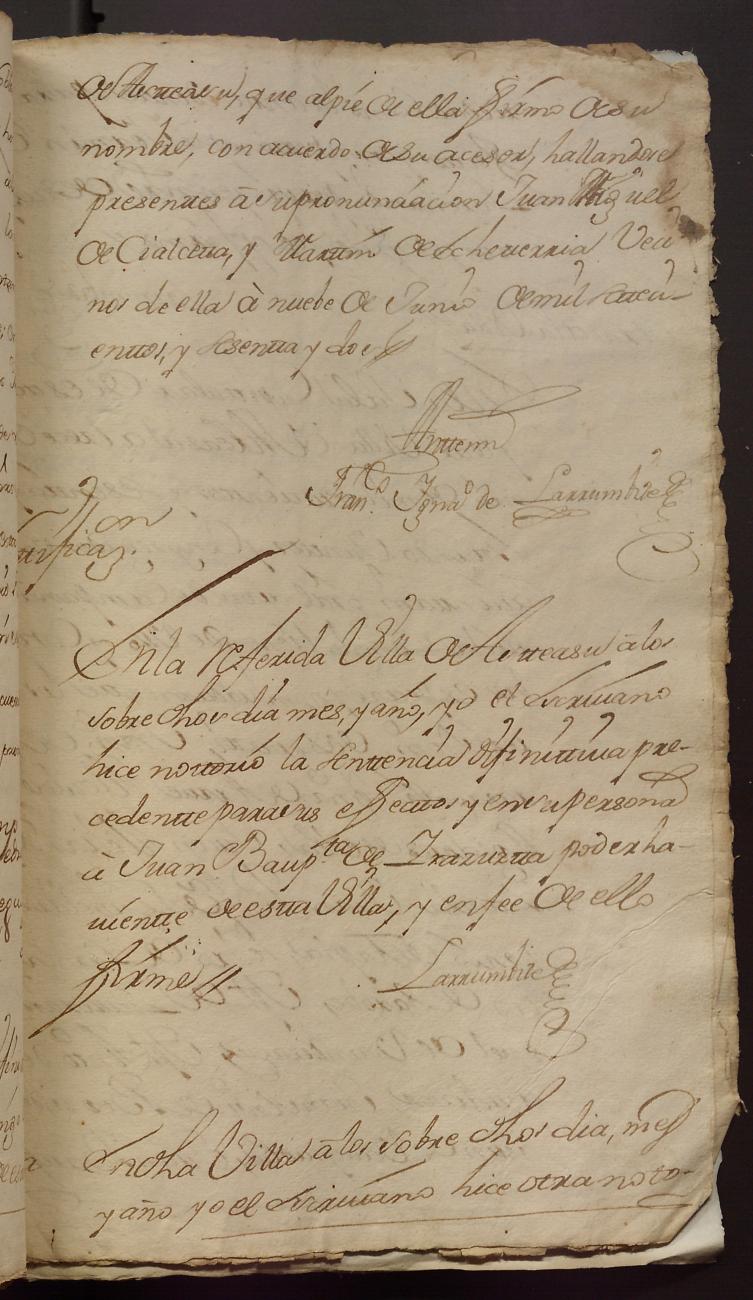 de Arrasu, que alpie de ella firmo desu
nombre, con acuerdo desu acesor, hallandose
presentes â supronunciacion Juan Miguel
de Cialceta, y Martin de Echeverria Veci
nos de ella â nuebe de Junio de mil setecí-
enttos, y sesentta y dos
Antemi
Franco Ignao de Larrumbide
Notton
tificaz.
En la referida Villa de Arrasu â los
sobre dhos dia mes, y año, yo el Scriuano
hice nottorio la Senttencia difinittiua pre-
cedentte parasus effecttos y ensupersona
â Juan Baupta de Irazuzta poderha-
uientte de estta Villa, y enfee de ello
firmé //
Larrumbide
En dha Villa â los sobre dhos dia, mes
y año yo el Scriuano hice otra noto-